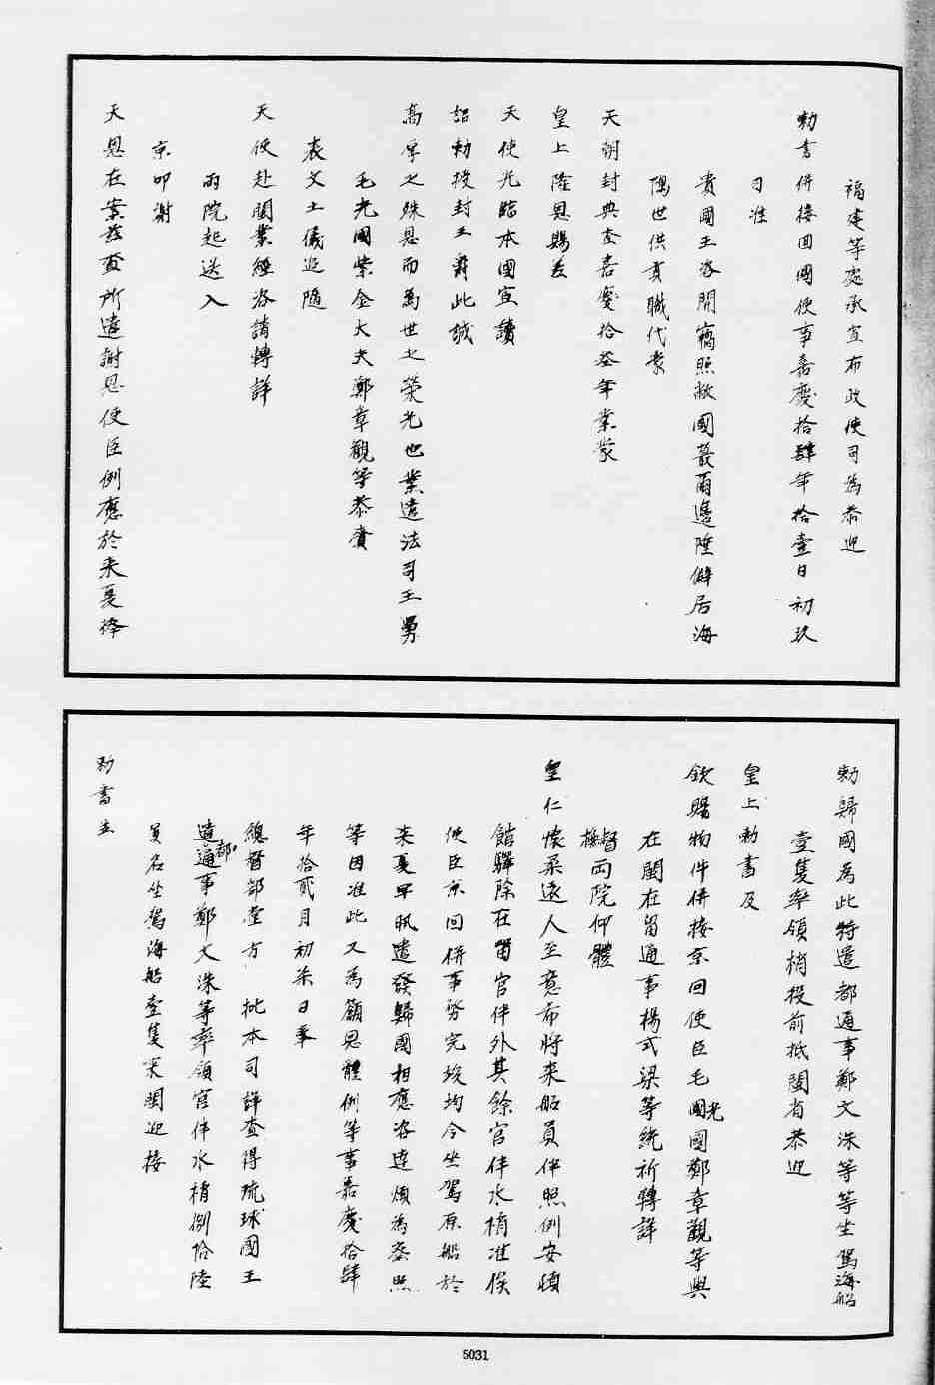 福建等處承宣布政使司為恭迎
勅書併接回國使事嘉慶拾肆年拾壹日初玖
日准
貴國王咨開竊照敝國蕞爾邊陲僻居海
隅世供貢職代蒙
天朝封典查嘉慶拾叁年業蒙
皇上隆恩賜差
天使光臨本國宣讀
詔勅授封王爵此誠
高厚之殊恩而萬世之榮光也業遣法司王舅
毛光國紫金大夫鄭章觀等恭賫
表文土儀追隨
天使赴閩業經咨請轉詳
兩院起送入
京叩謝
天恩在案茲查所遣謝恩使臣例應於来夏捧
勅歸國為此特遣都通事鄭文洙等等坐駕海船
壹隻率領梢役前抵閩省恭迎
皇上勅書及
欽賜物件併接京回使臣毛國光國鄭章觀等與
在閩在留通事楊式梁等統祈轉詳
督撫兩院仰體
皇仁懷柔遠人至意希將来船員伴照例安頓
館驛除在留官伴外其餘官伴水梢准俟
使臣京回併事務完竣均令坐駕原船於
来夏早汛遣發歸國相應咨達煩為察照
等因准此又為籲恩體例等事嘉慶拾肆
年拾貳月初柒日奉
總督部堂方 批本司詳查得琉球國王
遣都通事鄭文洙等率領官伴水梢捌拾陸
員名坐駕海船壹隻来閩迎接
勅書並
5031